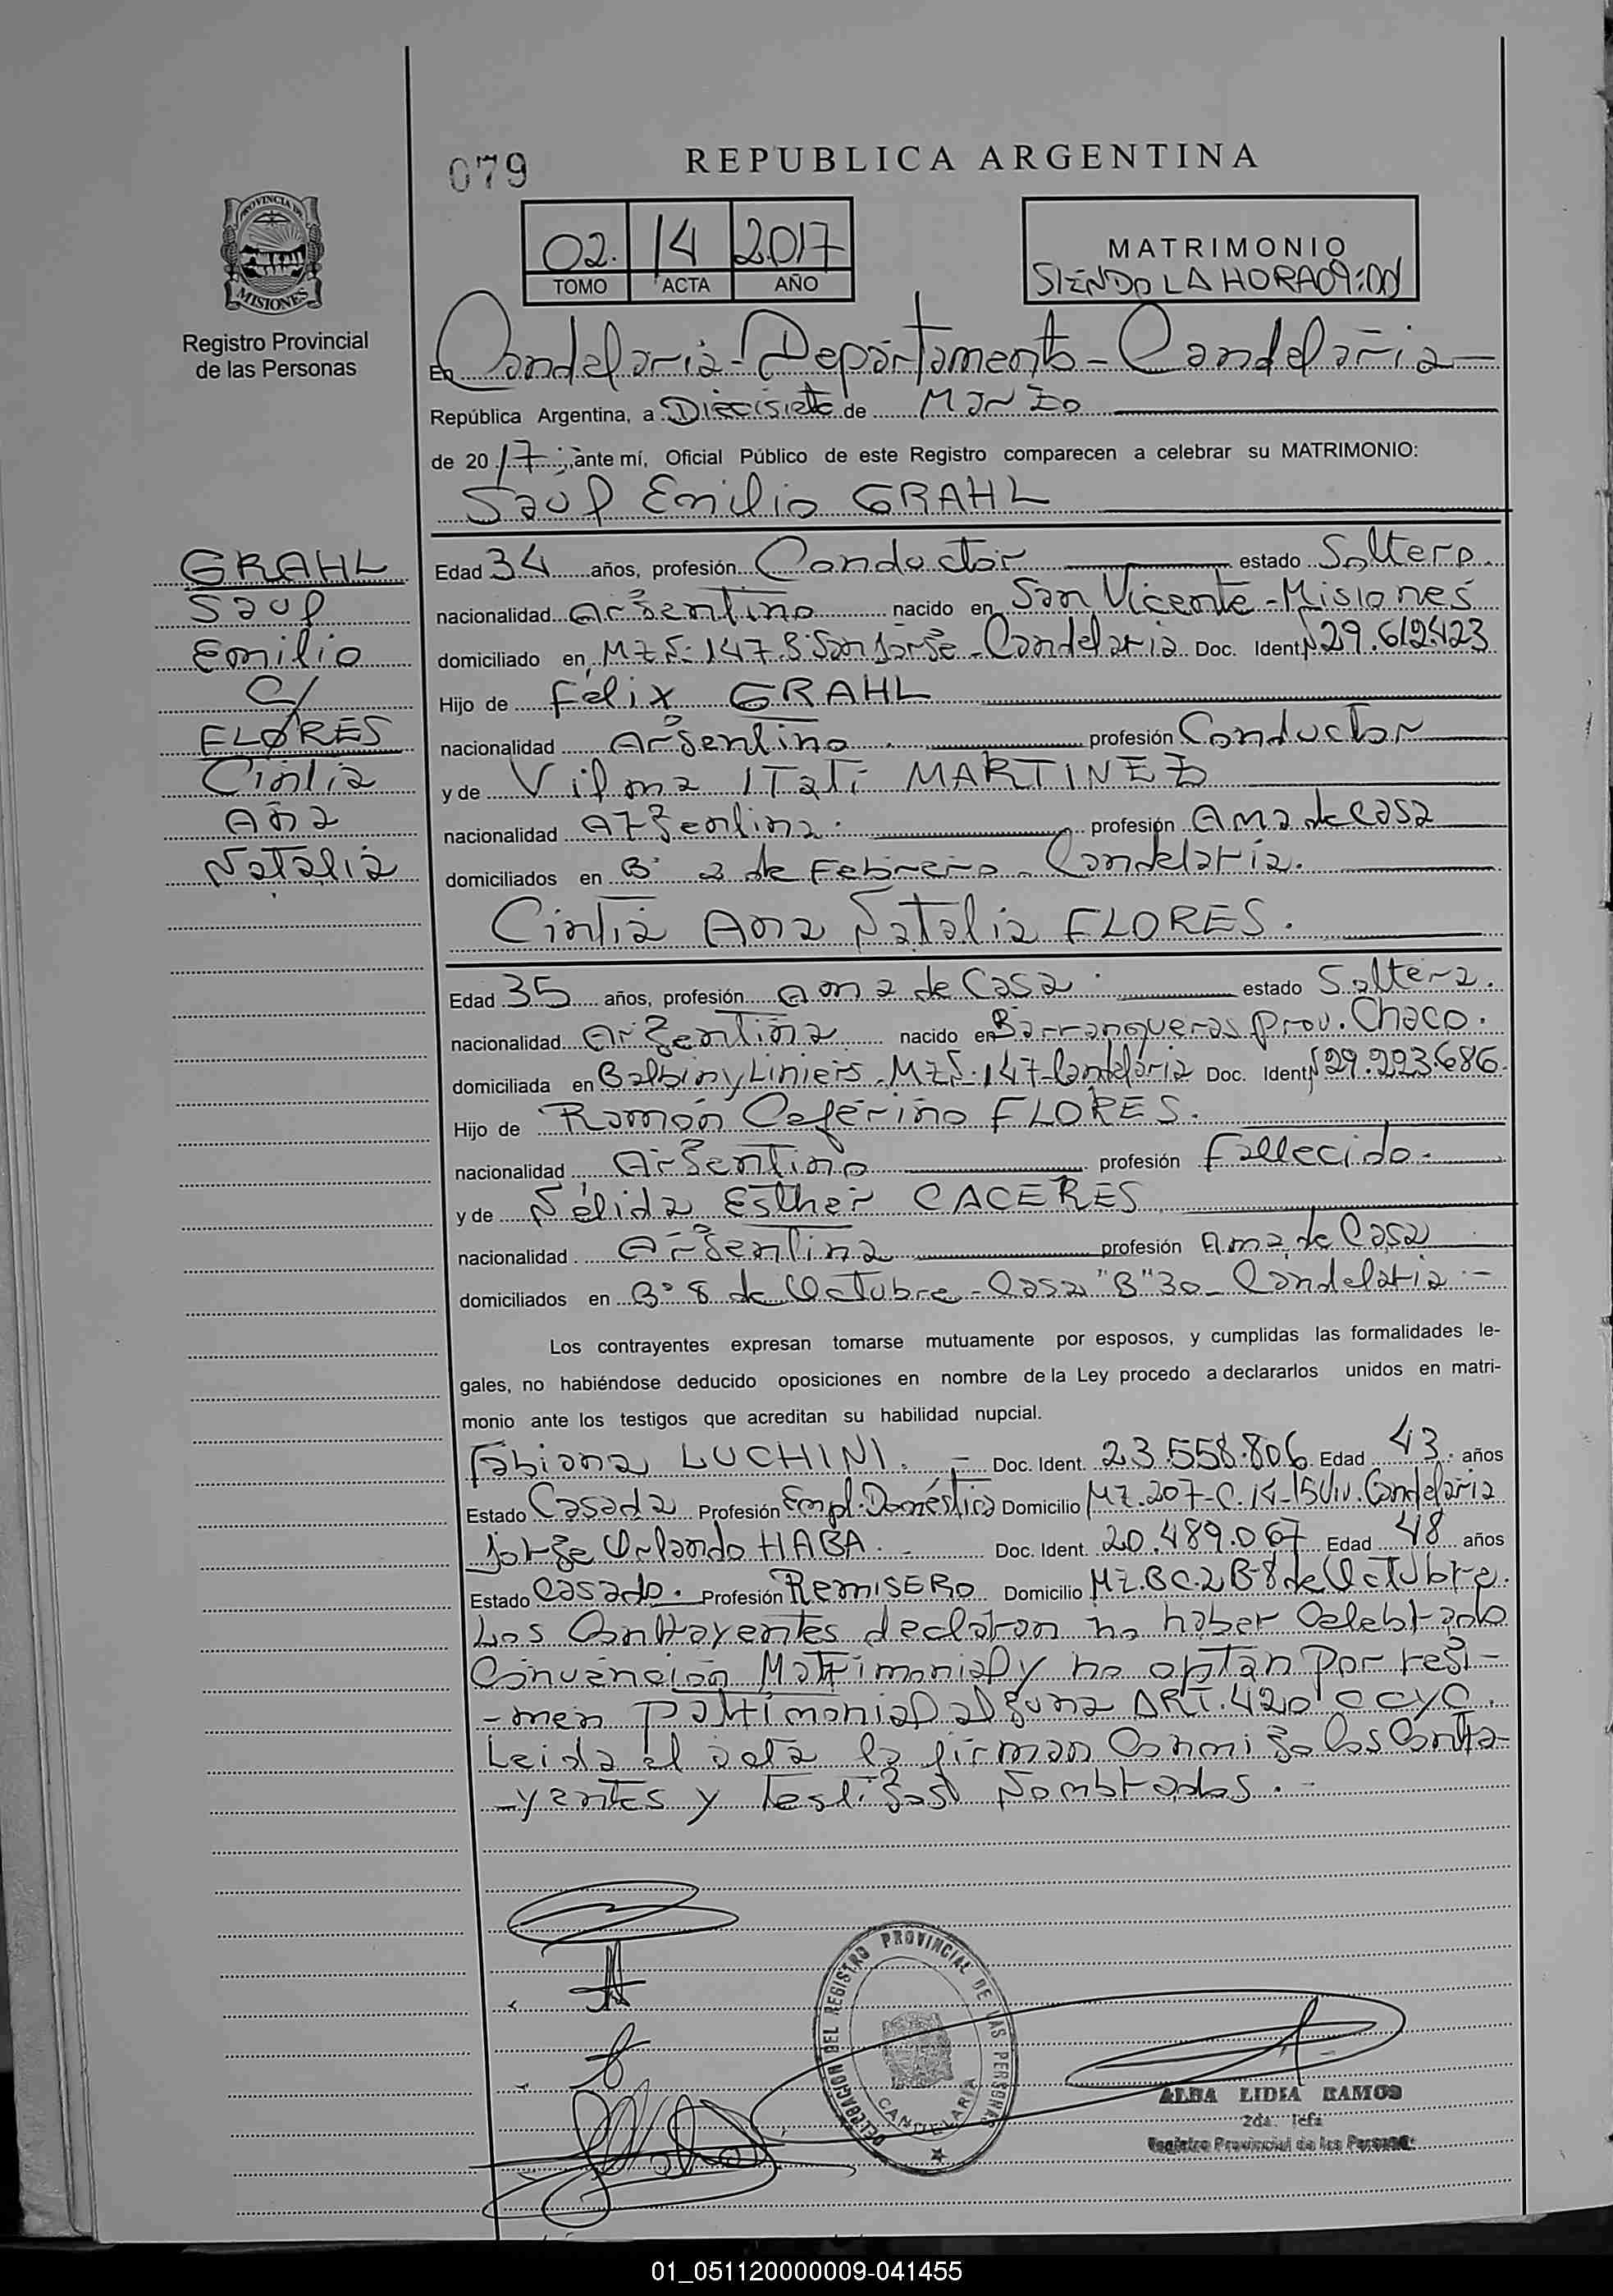 079
REPUBLICA ARGENTINA
PROVINCIA DE
MISIONES
Registro Provincial
de las Personas
02. 14 2017
TOMO ACTA AÑO
MATRIMONIO
SIENDO LA HORA 09:00
En Candelaria - Departamento - Candelaria
República Argentina, a Diecisiete de Marzo
de 2017, ante mí, Oficial Público de este Registro comparecen a celebrar su MATRIMONIO:
Saúl Emilio GRAHL
GRAHL
Saul
Emilio
C/
FLORES
Cintia
Ana
Natalia
Edad 34 años, profesión Conductor estado Soltero.
nacionalidad Argentino nacido en San Vicente - Misiones
domiciliado en Mz S: 147 B: San Jorge - Candelaria Doc. Ident. N 29.612.423
Hijo de Félix GRAHL
nacionalidad Argentino profesión Conductor
y de Vilma Itatí MARTINEZ
nacionalidad Argentina. profesión Ama de Casa
domiciliados en B° 2 de Febrero - Candelaria.
Cintia Ana Natalia FLORES.
Edad 35 años, profesión Ama de Casa. estado Soltera.
nacionalidad Argentina nacido en Barranqueras Prov. Chaco.
domiciliada en Balbin y Liniers - Mz S. 147 - Candelaria Doc. Ident. N 29.223.686
Hijo de Ramón Ceferino FLORES.
nacionalidad Argentino profesión Fallecido.
y de Nélida Esther CACERES
nacionalidad Argentina profesión Ama de Casa
domiciliados en B° 8 de Octubre - Casa "B" 30 - Candelaria
Los contrayentes expresan tomarse mutuamente por esposos, y cumplidas las formalidades le-
gales, no habiéndose deducido oposiciones en nombre de la Ley procedo a declararlos unidos en matri-
monio ante los testigos que acreditan su habilidad nupcial.
Fabiana LUCHINI. Doc. Ident. 23.558.806 Edad 43 años
Estado Casada Profesión Empl. Doméstica Domicilio Mz. 207 - C. 14 - 15 Viv. Candelaria
Jorge Orlando HABA. Doc. Ident. 20.489.067 Edad 48 años
Estado Casado. Profesión REMISERO Domicilio Mz. B C. 2 B - 8 de Octubre.
Los Contrayentes declaran no haber Celebrado
Convención Matrimonial y no optan por regi-
-men patrimonial alguna ART. 420 CCYC.
Leida el acta la firman Conmigo los Contra-
-yentes y Testigos Nombrados.
DELEGACION DEL REGISTRO PROVINCIAL DE LAS PERSONAS
CANDELARIA
ALBA LIDIA RAMOS
2da. Jefa
Registro Provincial de las Personas
01_051120000009-041455